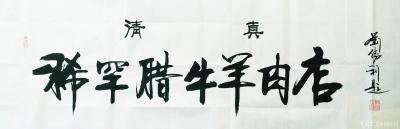 清真
稀罕腊牛羊肉店
利题